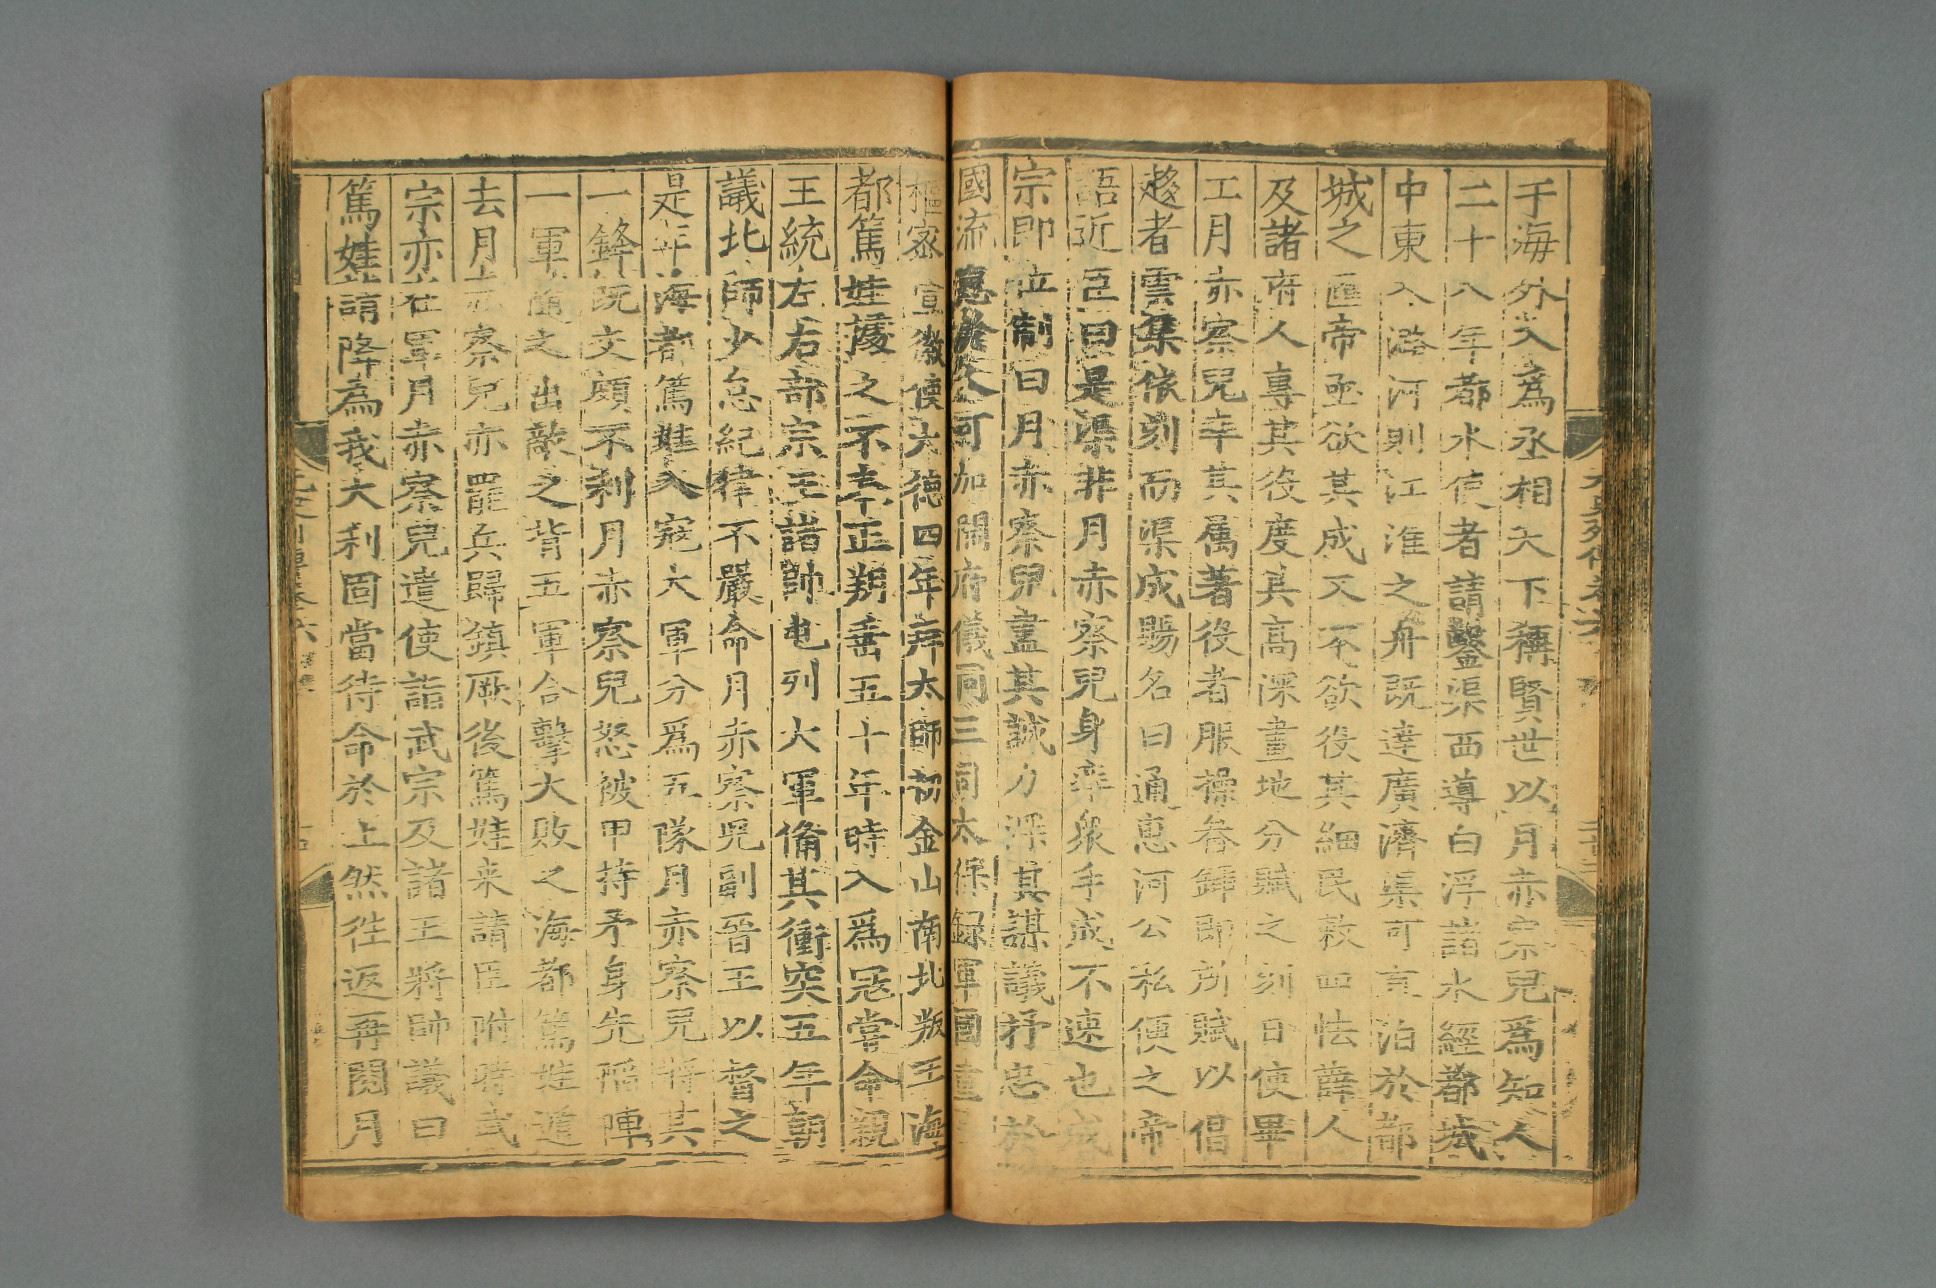 于海外入為丞相天下稱賢世以月赤察兒爲知人
二十八年都水使者請鑿渠西導白浮諸水經都城
中東入潞河則江淮之舟既達廣濟渠可直泊於都
城之匯帝亟欲其成又不欲役其細民敕四怯薛人
及諸府人專其役度其高深畫地分賦之刻日使畢
工月赤察兒率其属著役者服操畚鍤即所賦以倡
趍者雲集依刻而渠成賜名曰通惠河公私便之帝
語近臣曰是渠非月赤察兒身率衆手成不速也成
宗即位制曰月赤察兒盡其誠力深其謀議抒忠於
國流惠於人可加開府儀同三司太保録軍國重
樞密宣徽使大德四年拜太師初金山南北叛王海
都篤娃據之不奉正朔垂五十年時入爲冦甞命親
王統左右部宗王諸帥屯列大軍備其衝突五年朝
議北師少怠紀律不嚴命月赤察兒副晉王以督之
是年海都篤娃入寇大軍分爲五隊月赤察兒將其
一鋒既交頗不利月赤察兒怒被甲持矛身先陷陣
一軍随之出敵之背五軍合擊大敗之海都篤娃遁
去月赤察兒亦罷兵歸鎮厥後篤娃来請臣附時武
宗亦在軍月赤察兒遣使詣武宗及諸王將帥議曰
篤娃請降為我大利固當待命於上然徃返再閱月
元史列傳卷六